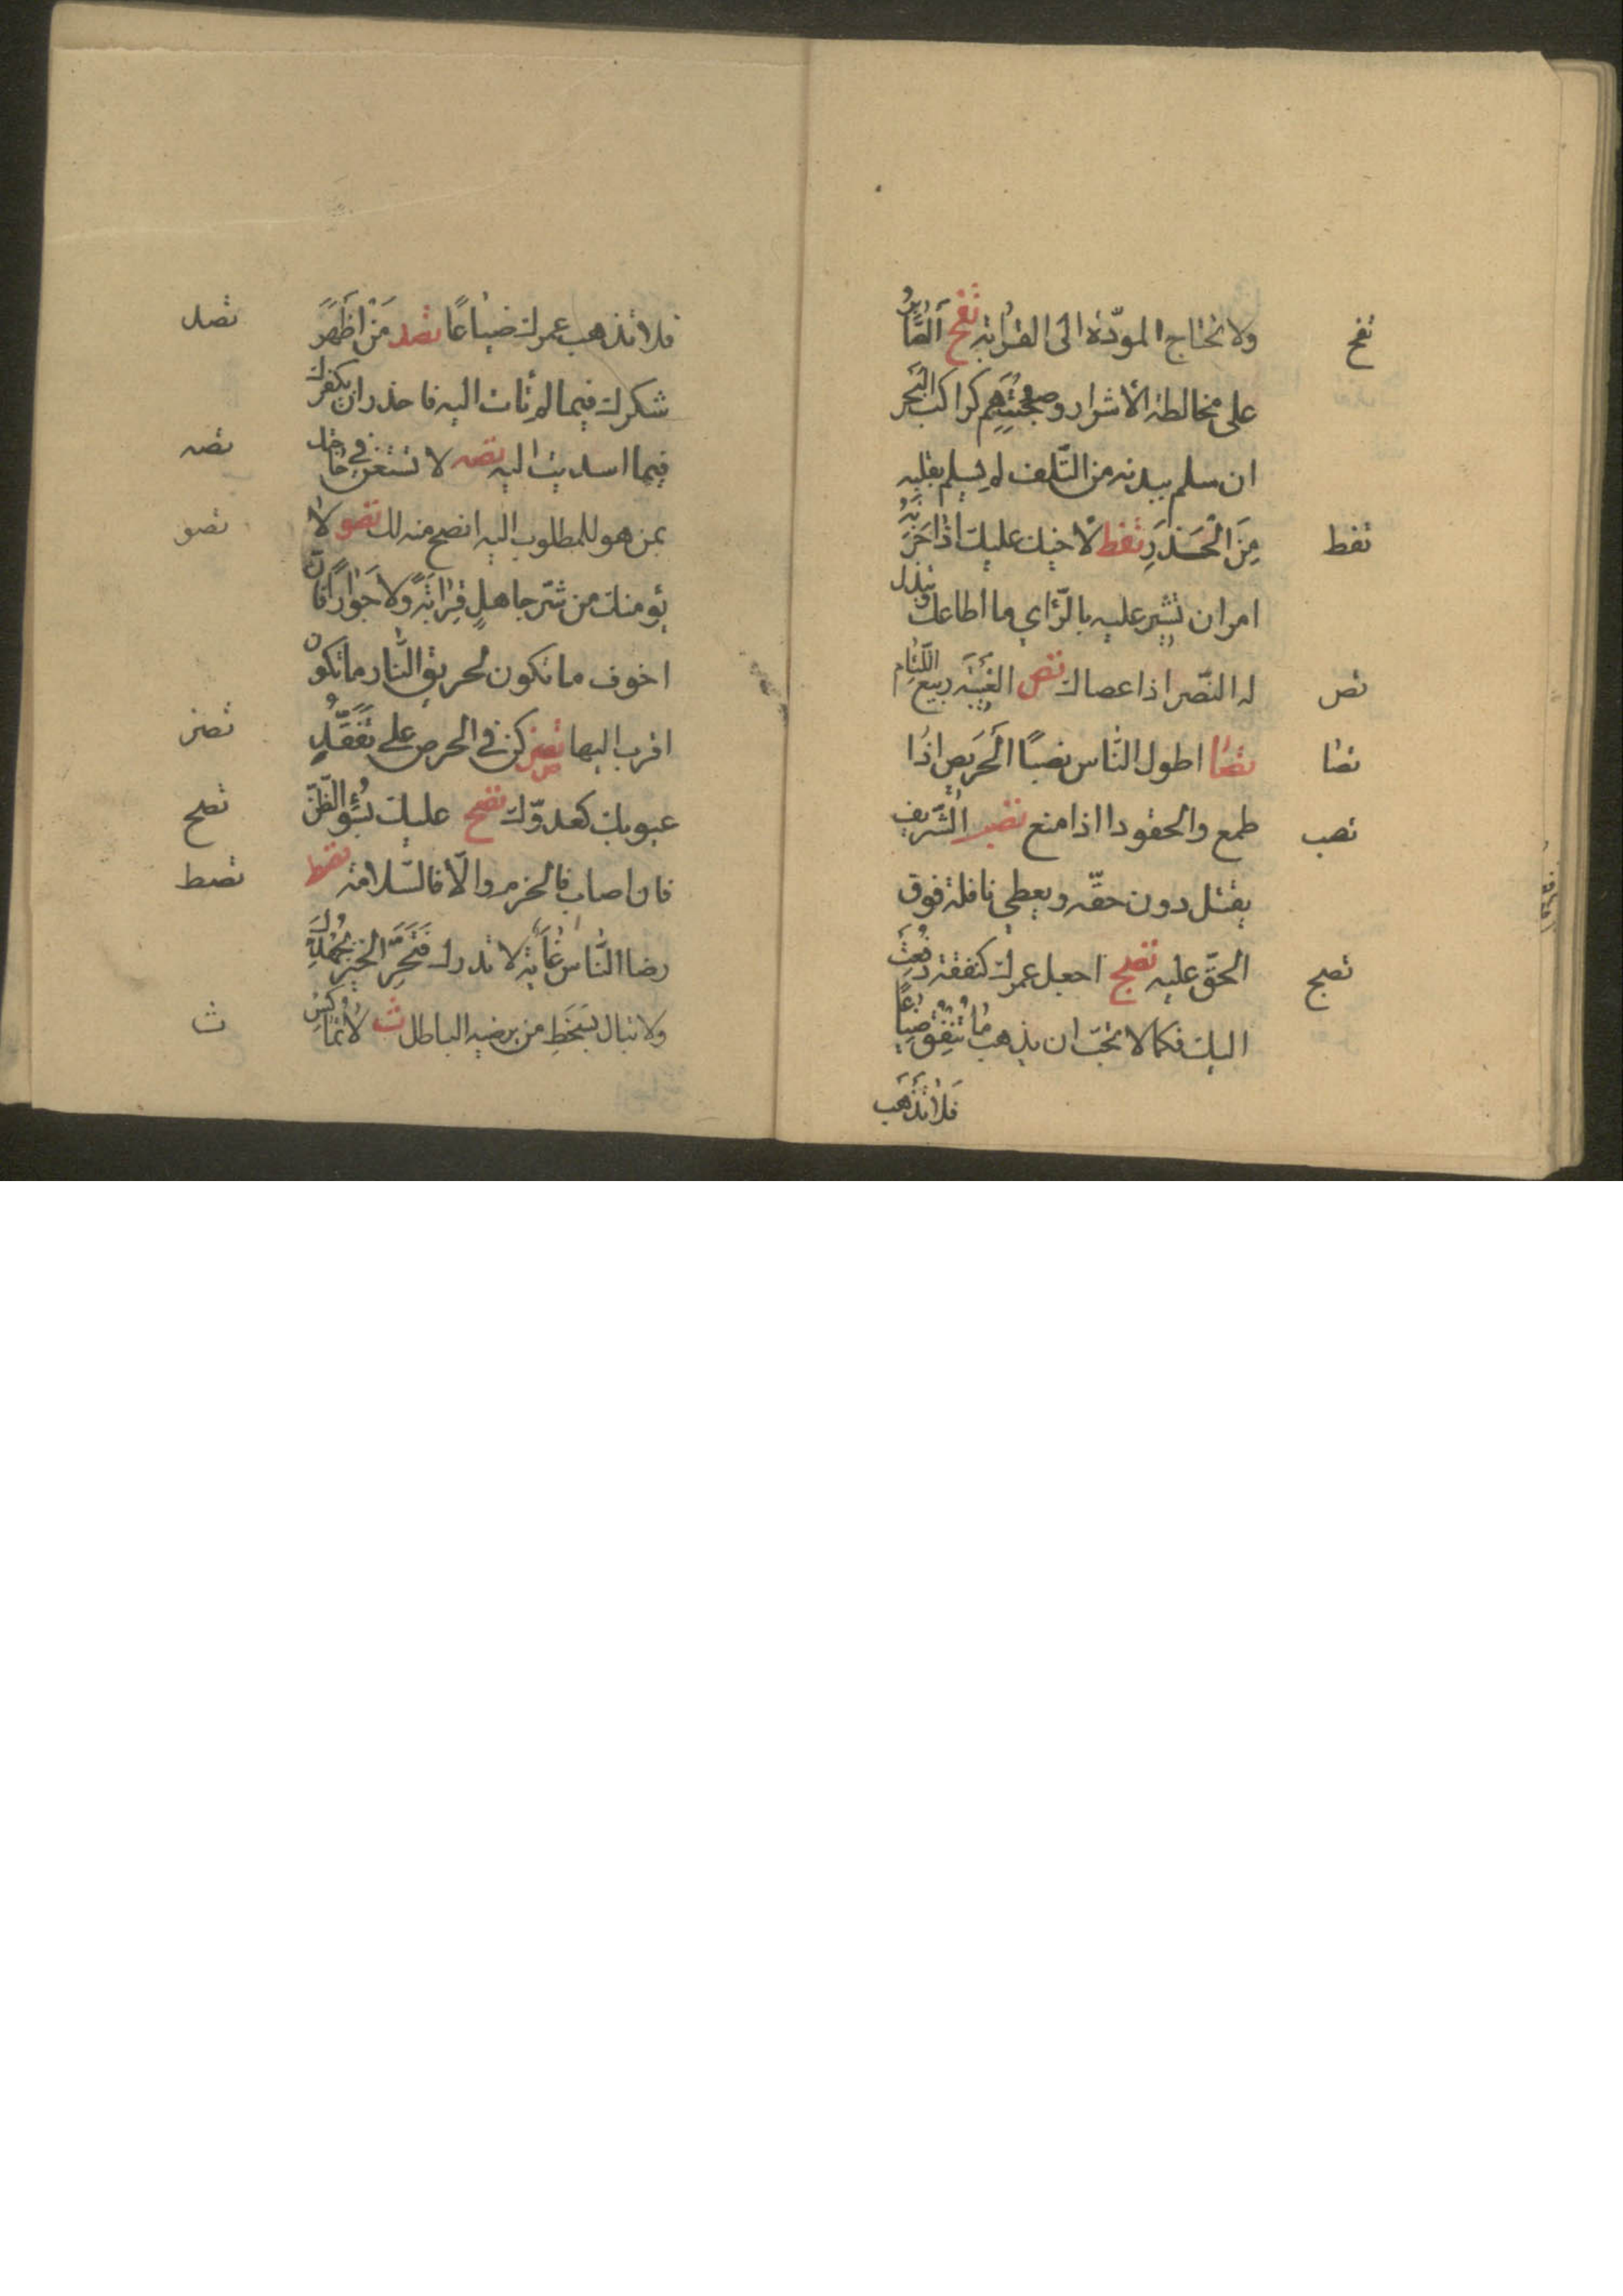 ولا تحتاج المودّة الى القرابة ثفح الصّابرُ
ثفح
على مخالطة الأشرار وصُحْبَتِهِم كراكب البَحر
ان سلم ببدنه من التّلف لم يسلم بقلبه
مِنَ الْحَذَرِ ثفط لأخيك عليك اذا حَزَبَهُ
ثفط
امر ان تشير عليه بالرّأي ما اطاعك وتبذل
له النّصر اذا عصاك ثص الغيبَة ربيع اللّئام
ثص
ثصا اطول النّاس نصبًا الحَريص اذا
ثصا
طمع والحقود اذا منع ثصب الشّريف
ثصب
يقتل دون حقّه ويعطي نافلة فوق
الحقّ عليه ثصج اجعل عمرك كنفقة دُفِعَتْ
ثصج
اليك فكما لا تحبّ ان يذهب ما تُنْفِقُ ضِياعًا
فَلا تُذْهِب
فلا تذهب عمرك ضياعًا ثصد مَنْ اَظْهَرَ
ثصد
شكرك فيما لم تأت اليه فاحذر ان يكفرك
فيما اسديت اليه ثصه لا تستعن في حاجتك
ثصه
بمن هو للمطلوب اليه انصح منه لك ثصو لا
ثصو
يؤمنك من شرّ جاهلٍ قِرابَةٌ ولا جَوارٌ فانّ
اخوف ما تكون لحريق النّار ما تكون
اقرب اليها ثصز كن في الحرص على تَفَقُّدِ
ثصز
عيوبك كعدوّك ثصح عليك بسُوءِ الظّنّ
ثصح
فان اصاب فالحزم والّا فالسّلامة ثصط
ثصط
رضا النّاس غايَة لا تدرك فَتَحَرَّ الخَيْرَ بِجُهْدِكَ
ولا تبال بسَخَطِ من يرضيه الباطل ث لا تُماكِسْ
ث